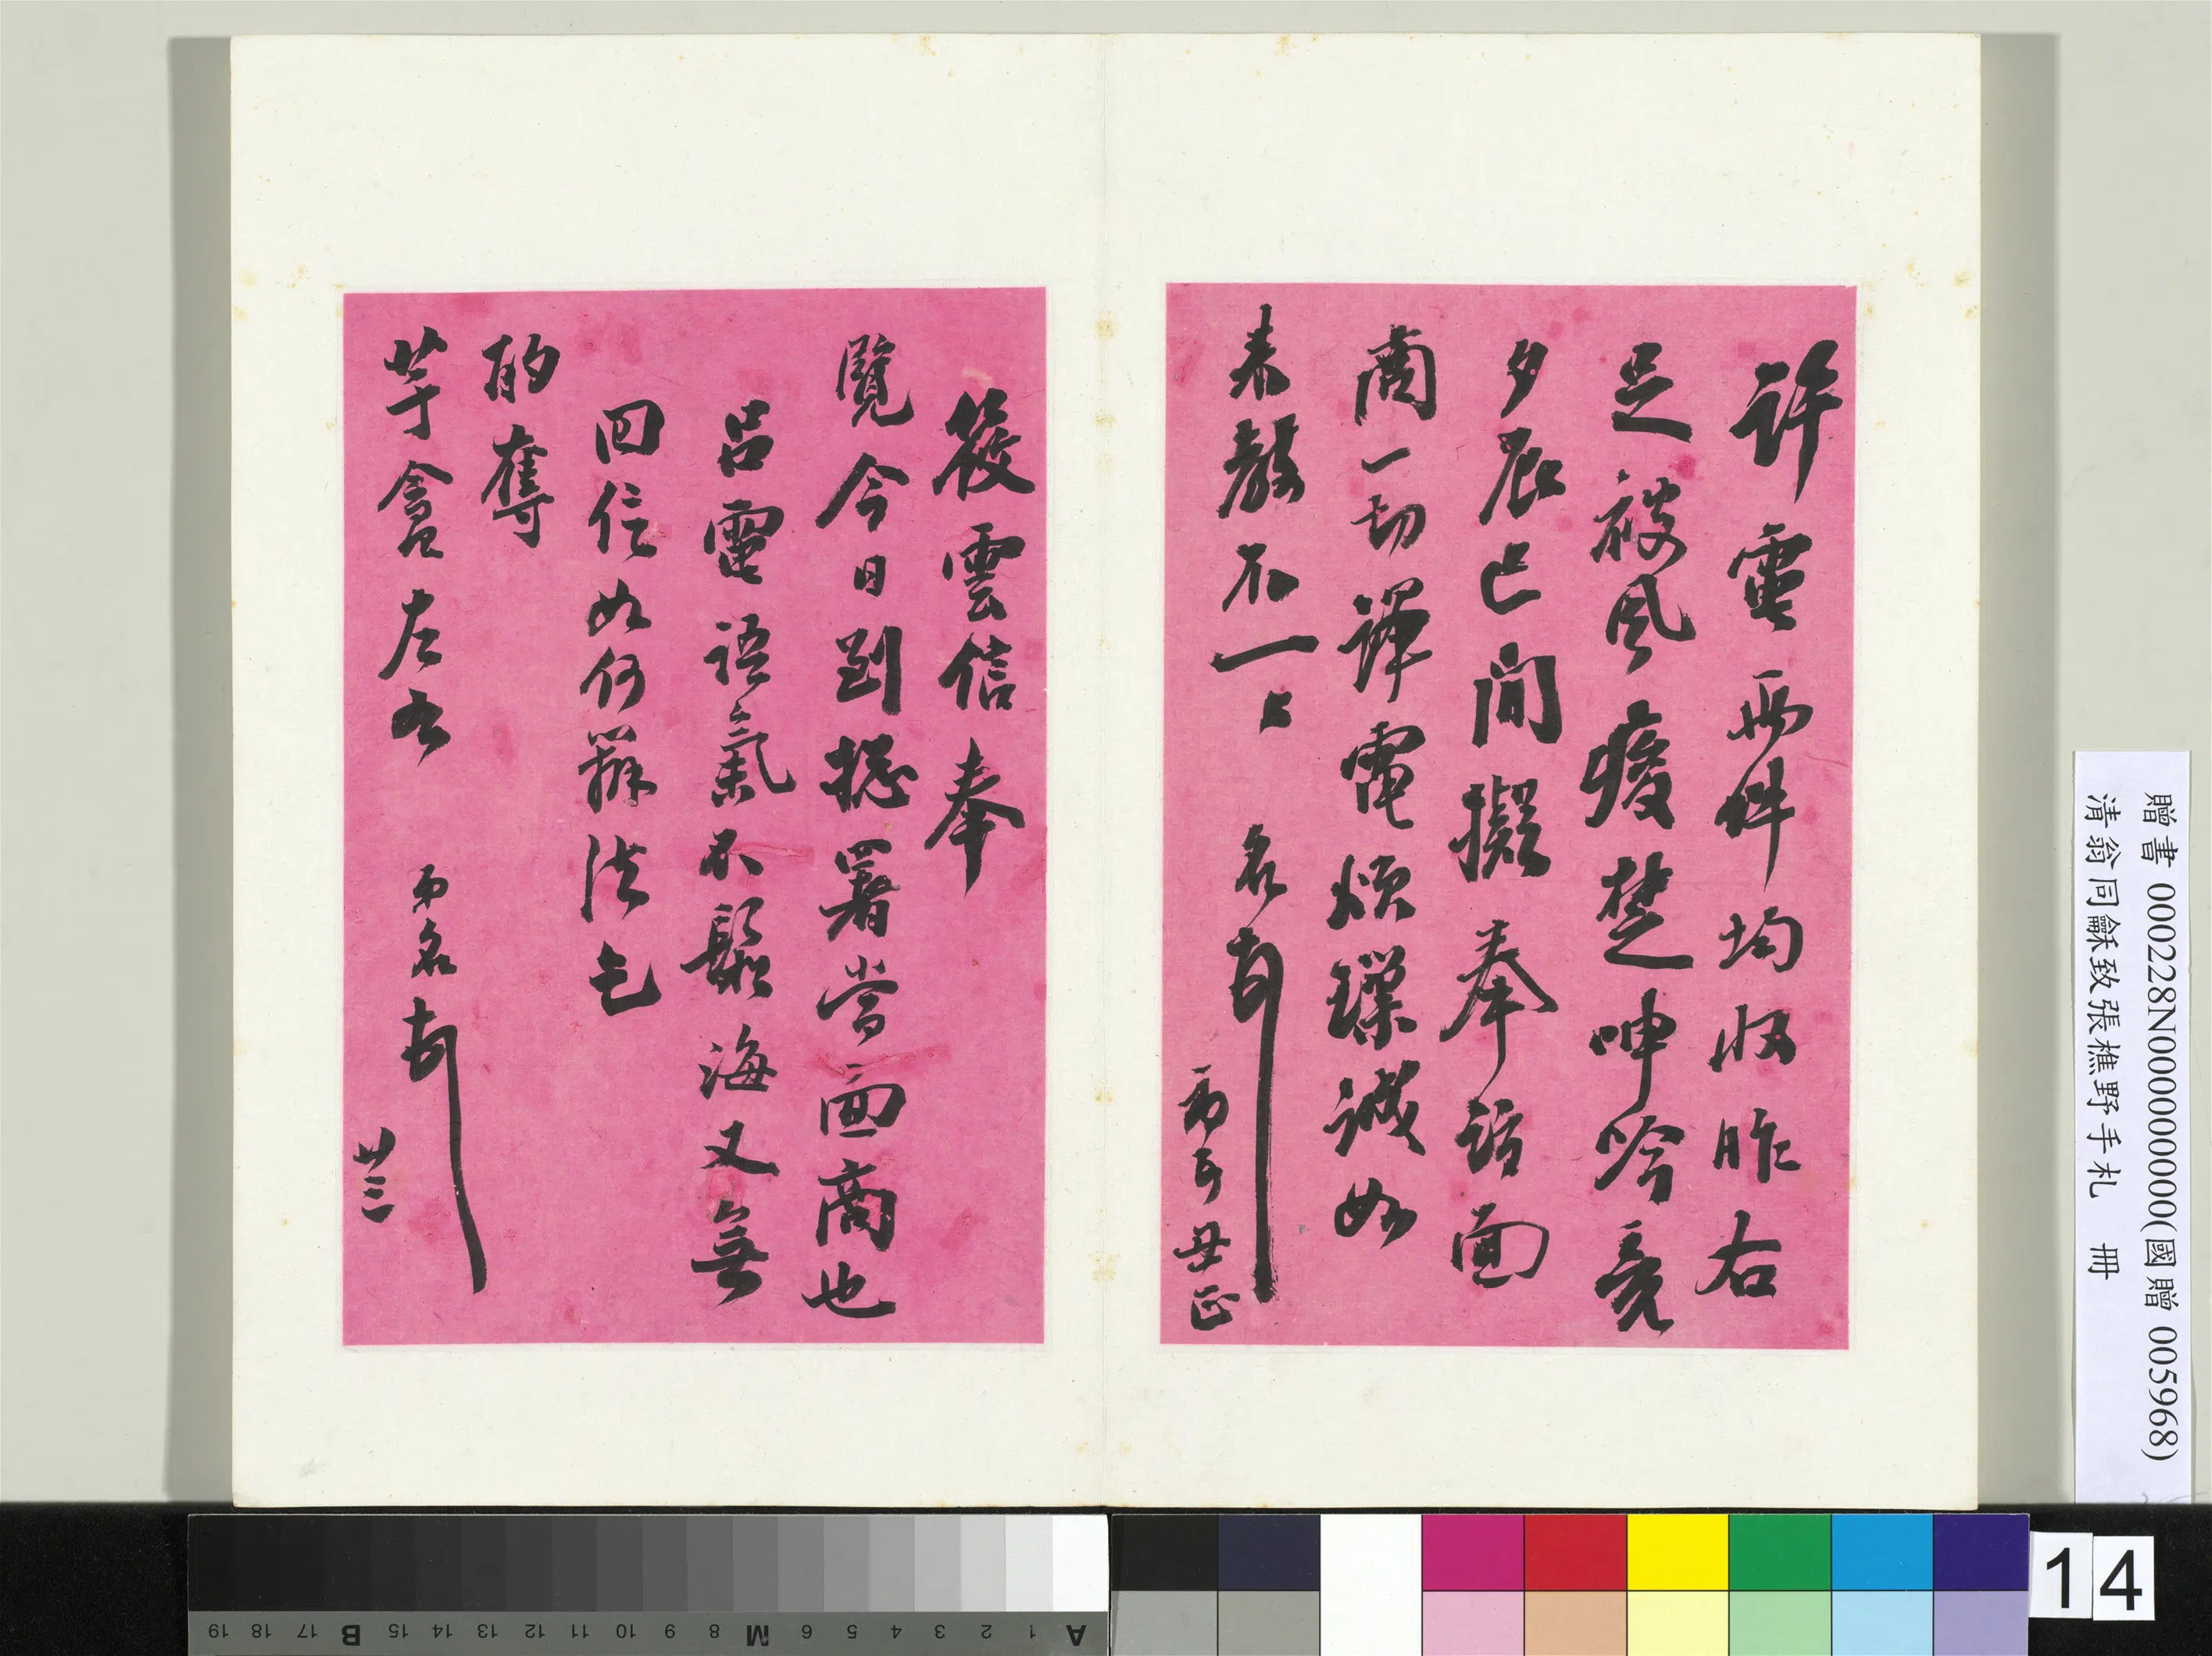 許電兩件均收昨右
足被風痿楚呻吟竟
夕辰巳間擬奉詣面
商一切譯電煩璅誠如
來教不一一
名頓
初三日丑正
筱雲信奉
覽今日到總署當面商也
呂電語氣不鬆海又無
回信如何辦法乞
酌奪
芋盦左右
弟名頓
廿三
贈書 000228N000000000(國贈 005968)
清翁同龢致張樵野手札 冊
14
A 1 2 3 4 5 6 M 8 9 10 11 12 13 14 15 B 17 18 19